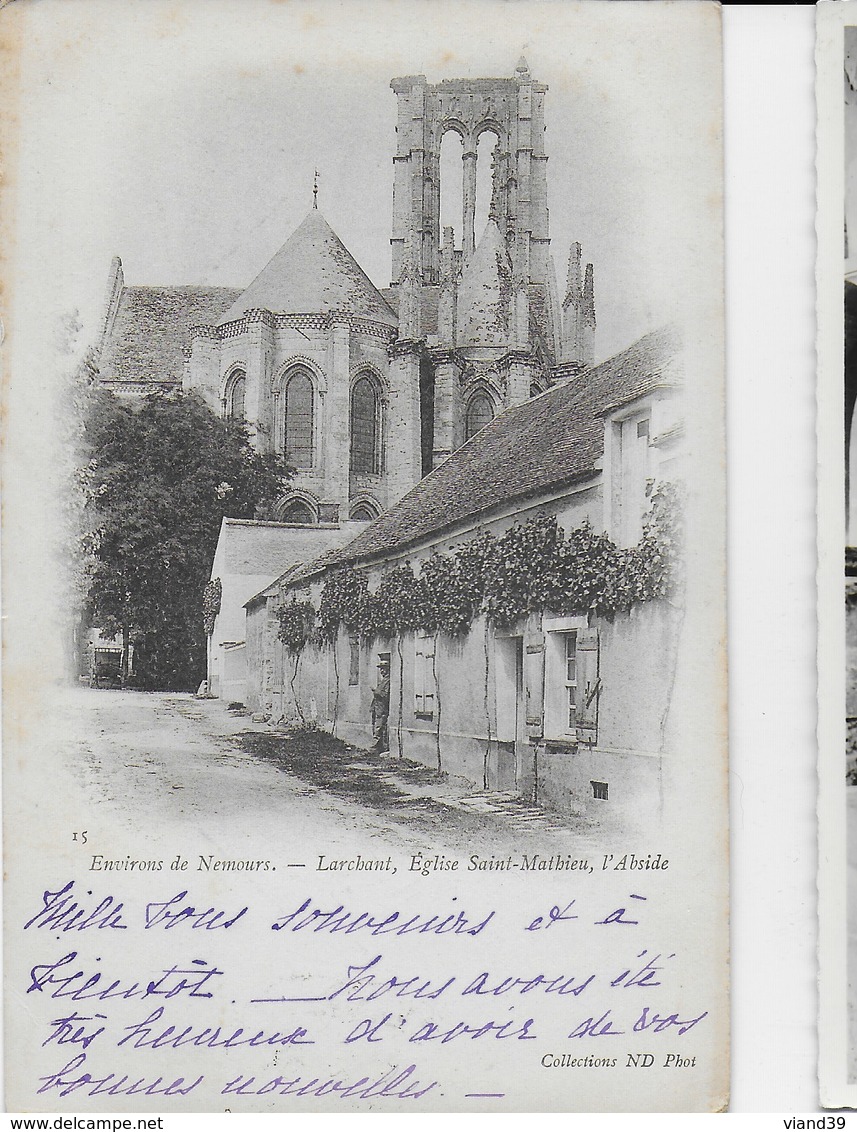 15
Environs de Nemours. — Larchant, Église Saint-Mathieu, l'Abside
Mille bons souvenirs et à
bientôt. — Nous avons été
très heureux d'avoir de vos
Collections ND Phot
bonnes nouvelles. —
viand39